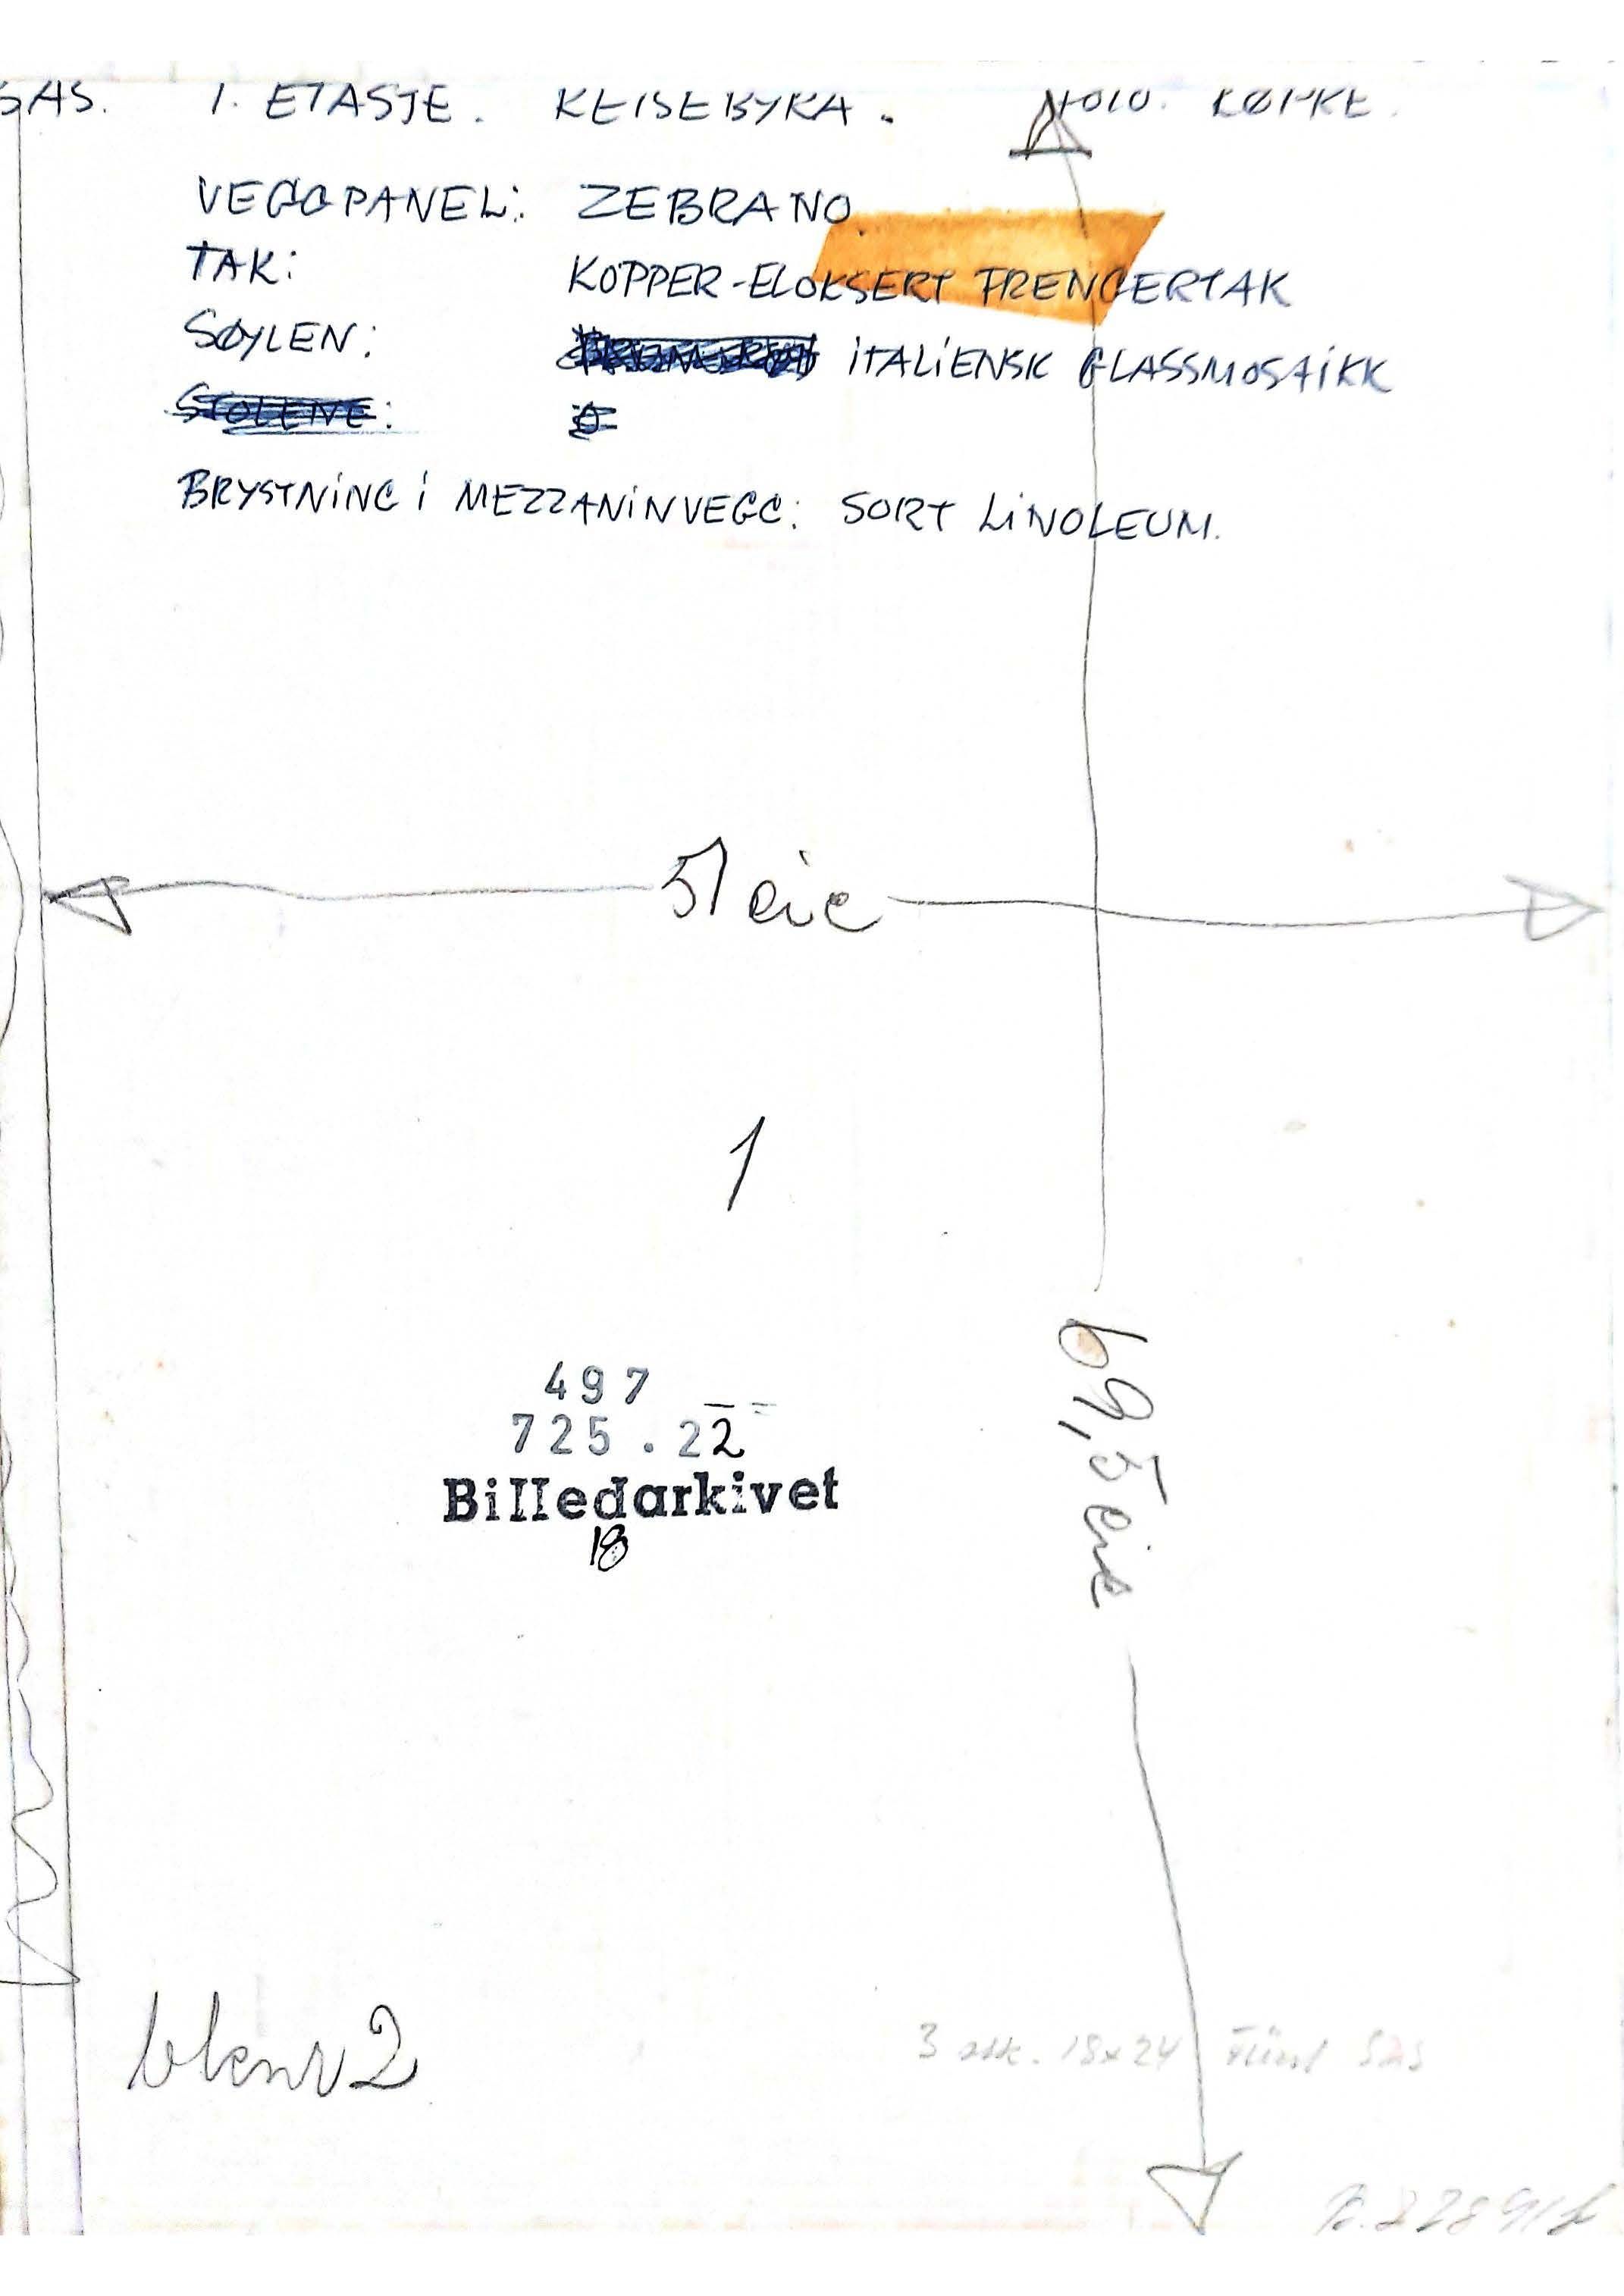 SAS. 1. ETASJE. REISEBYRÅ. FOTO. RØPKE.
VEGGPANEL: ZEBRANO
TAK: KOPPER-ELOKSERT TRENGERTAK
SØYLEN: ITALIENSK GLASSMOSAIKK
STOLENE:
BRYSTNING I MEZZANINVEGG: SORT LINOLEUM.
51 cic
1
69,5 cic
497
725.22
Billedarkivet
18
3 stk. 18x24 SAS